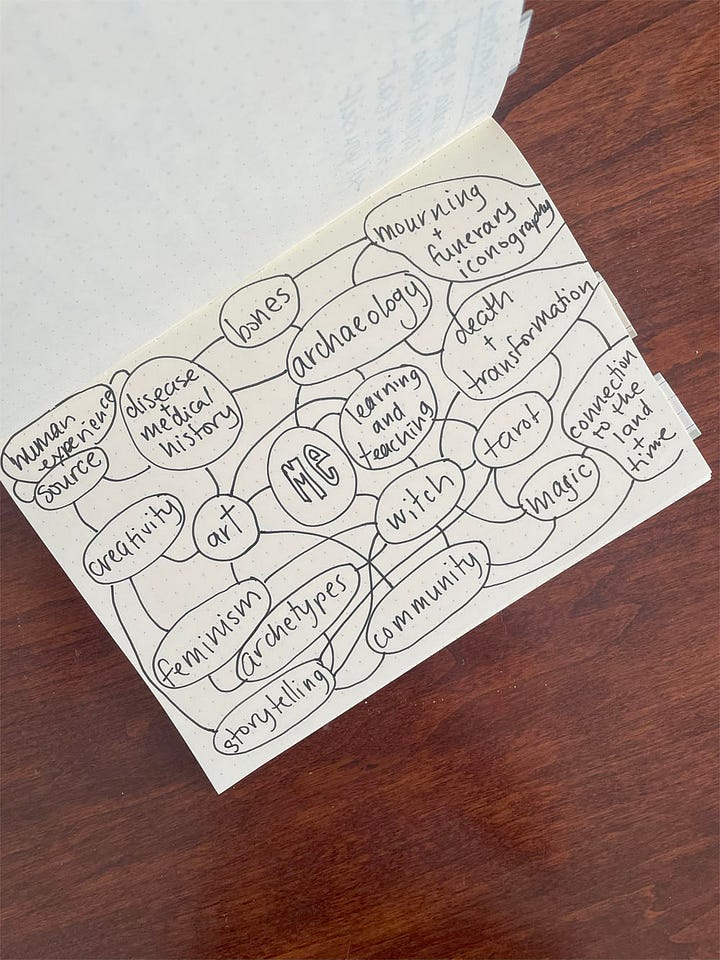 mourning
+
funerary
iconography
bones
archaeology
death
+
transformation
human
experience
source
disease
+
medical
history
learning
and
teaching
Me
tarot
connection
to the
land
+
time
creativity
art
witch
magic
feminism
archetypes
community
storytelling